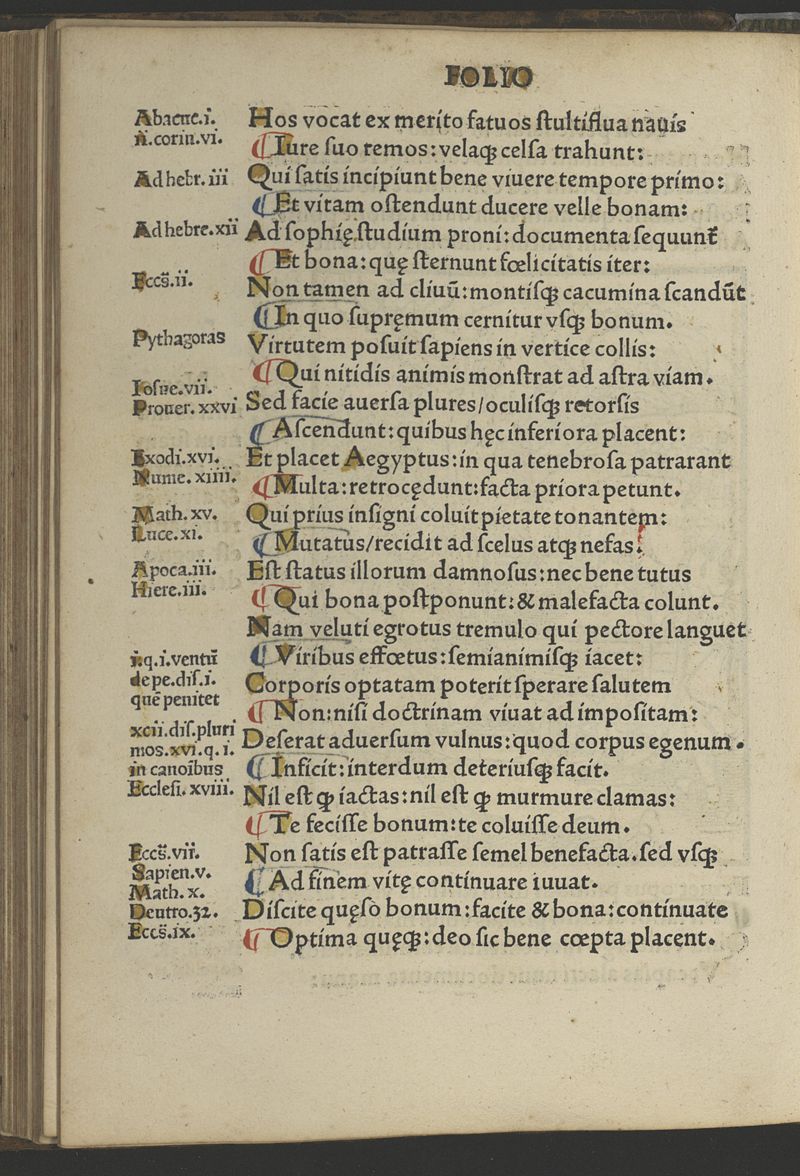 FOLIO
Abacuc.i.
ii.corin.vi.
Ad hebr.iii
Ad hebre.xii
Eccs̄.ii.
Pythagoras
Iosue.vii.
Prouer.xxvi
Exodi.xvi.
Nume.xiiii.
Math.xv.
Luce.xi.
Apoca.iii.
Hiere.iii.
ii.q.i.ventū
de pe.dis.i.
quē penitet
xcii.dis.pluri
mos.xvi.q.i.
in canoībus
Ecclesi.xviii.
Eccs̄.vii.
Sapien.v.
Math.x.
Deutro.32.
Eccs̄.ix.
Hos vocat ex merito fatuos ſtultiflua nauis
¶Iure ſuo remos:velaqꝫ celſa trahunt:
Qui ſatis incipiunt bene viuere tempore primo:
¶Et vitam oſtendunt ducere velle bonam:
Ad ſophię ſtudium proni:documenta ſequunt᷑
¶Et bona:quę ſternunt fœlicitatis iter:
Non tamen ad cliuū:montiſqꝫ cacumina ſcandūt
¶In quo ſupręmum cernitur vſqꝫ bonum.
Virtutem poſuit ſapiens in vertice collis:
¶Qui nitidis animis monſtrat ad aſtra viam.
Sed facie auerſa plures/oculiſqꝫ retorſis
¶Aſcendunt:quibus hęc inferiora placent:
Et placet Aegyptus:in qua tenebroſa patrarant
¶Multa:retrocędunt:facta priora petunt.
Qui prius inſigni coluit pietate tonantem:
¶Mutatus/recidit ad ſcelus atqꝫ nefas.
Eſt ſtatus illorum damnoſus:nec bene tutus
¶Qui bona poſtponunt:& malefacta colunt.
Nam veluti egrotus tremulo qui pectore languet
¶Viribus effœtus:ſemianimiſqꝫ iacet:
Corporis optatam poterit ſperare ſalutem
¶Non:niſi doctrinam viuat ad impoſitam:
Deſerat aduerſum vulnus:quod corpus egenum.
¶Inficit:interdum deteriuſqꝫ facit.
Nil eſt ꝙ iactas:nil eſt ꝙ murmure clamas:
¶Te feciſſe bonum:te coluiſſe deum.
Non ſatis eſt patraſſe ſemel benefacta.ſed vſqꝫ
¶Ad finem vitę continuare iuuat.
Diſcite quęſo bonum:facite & bona:continuate
¶Optima quęqꝫ:deo ſic bene cœpta placent.